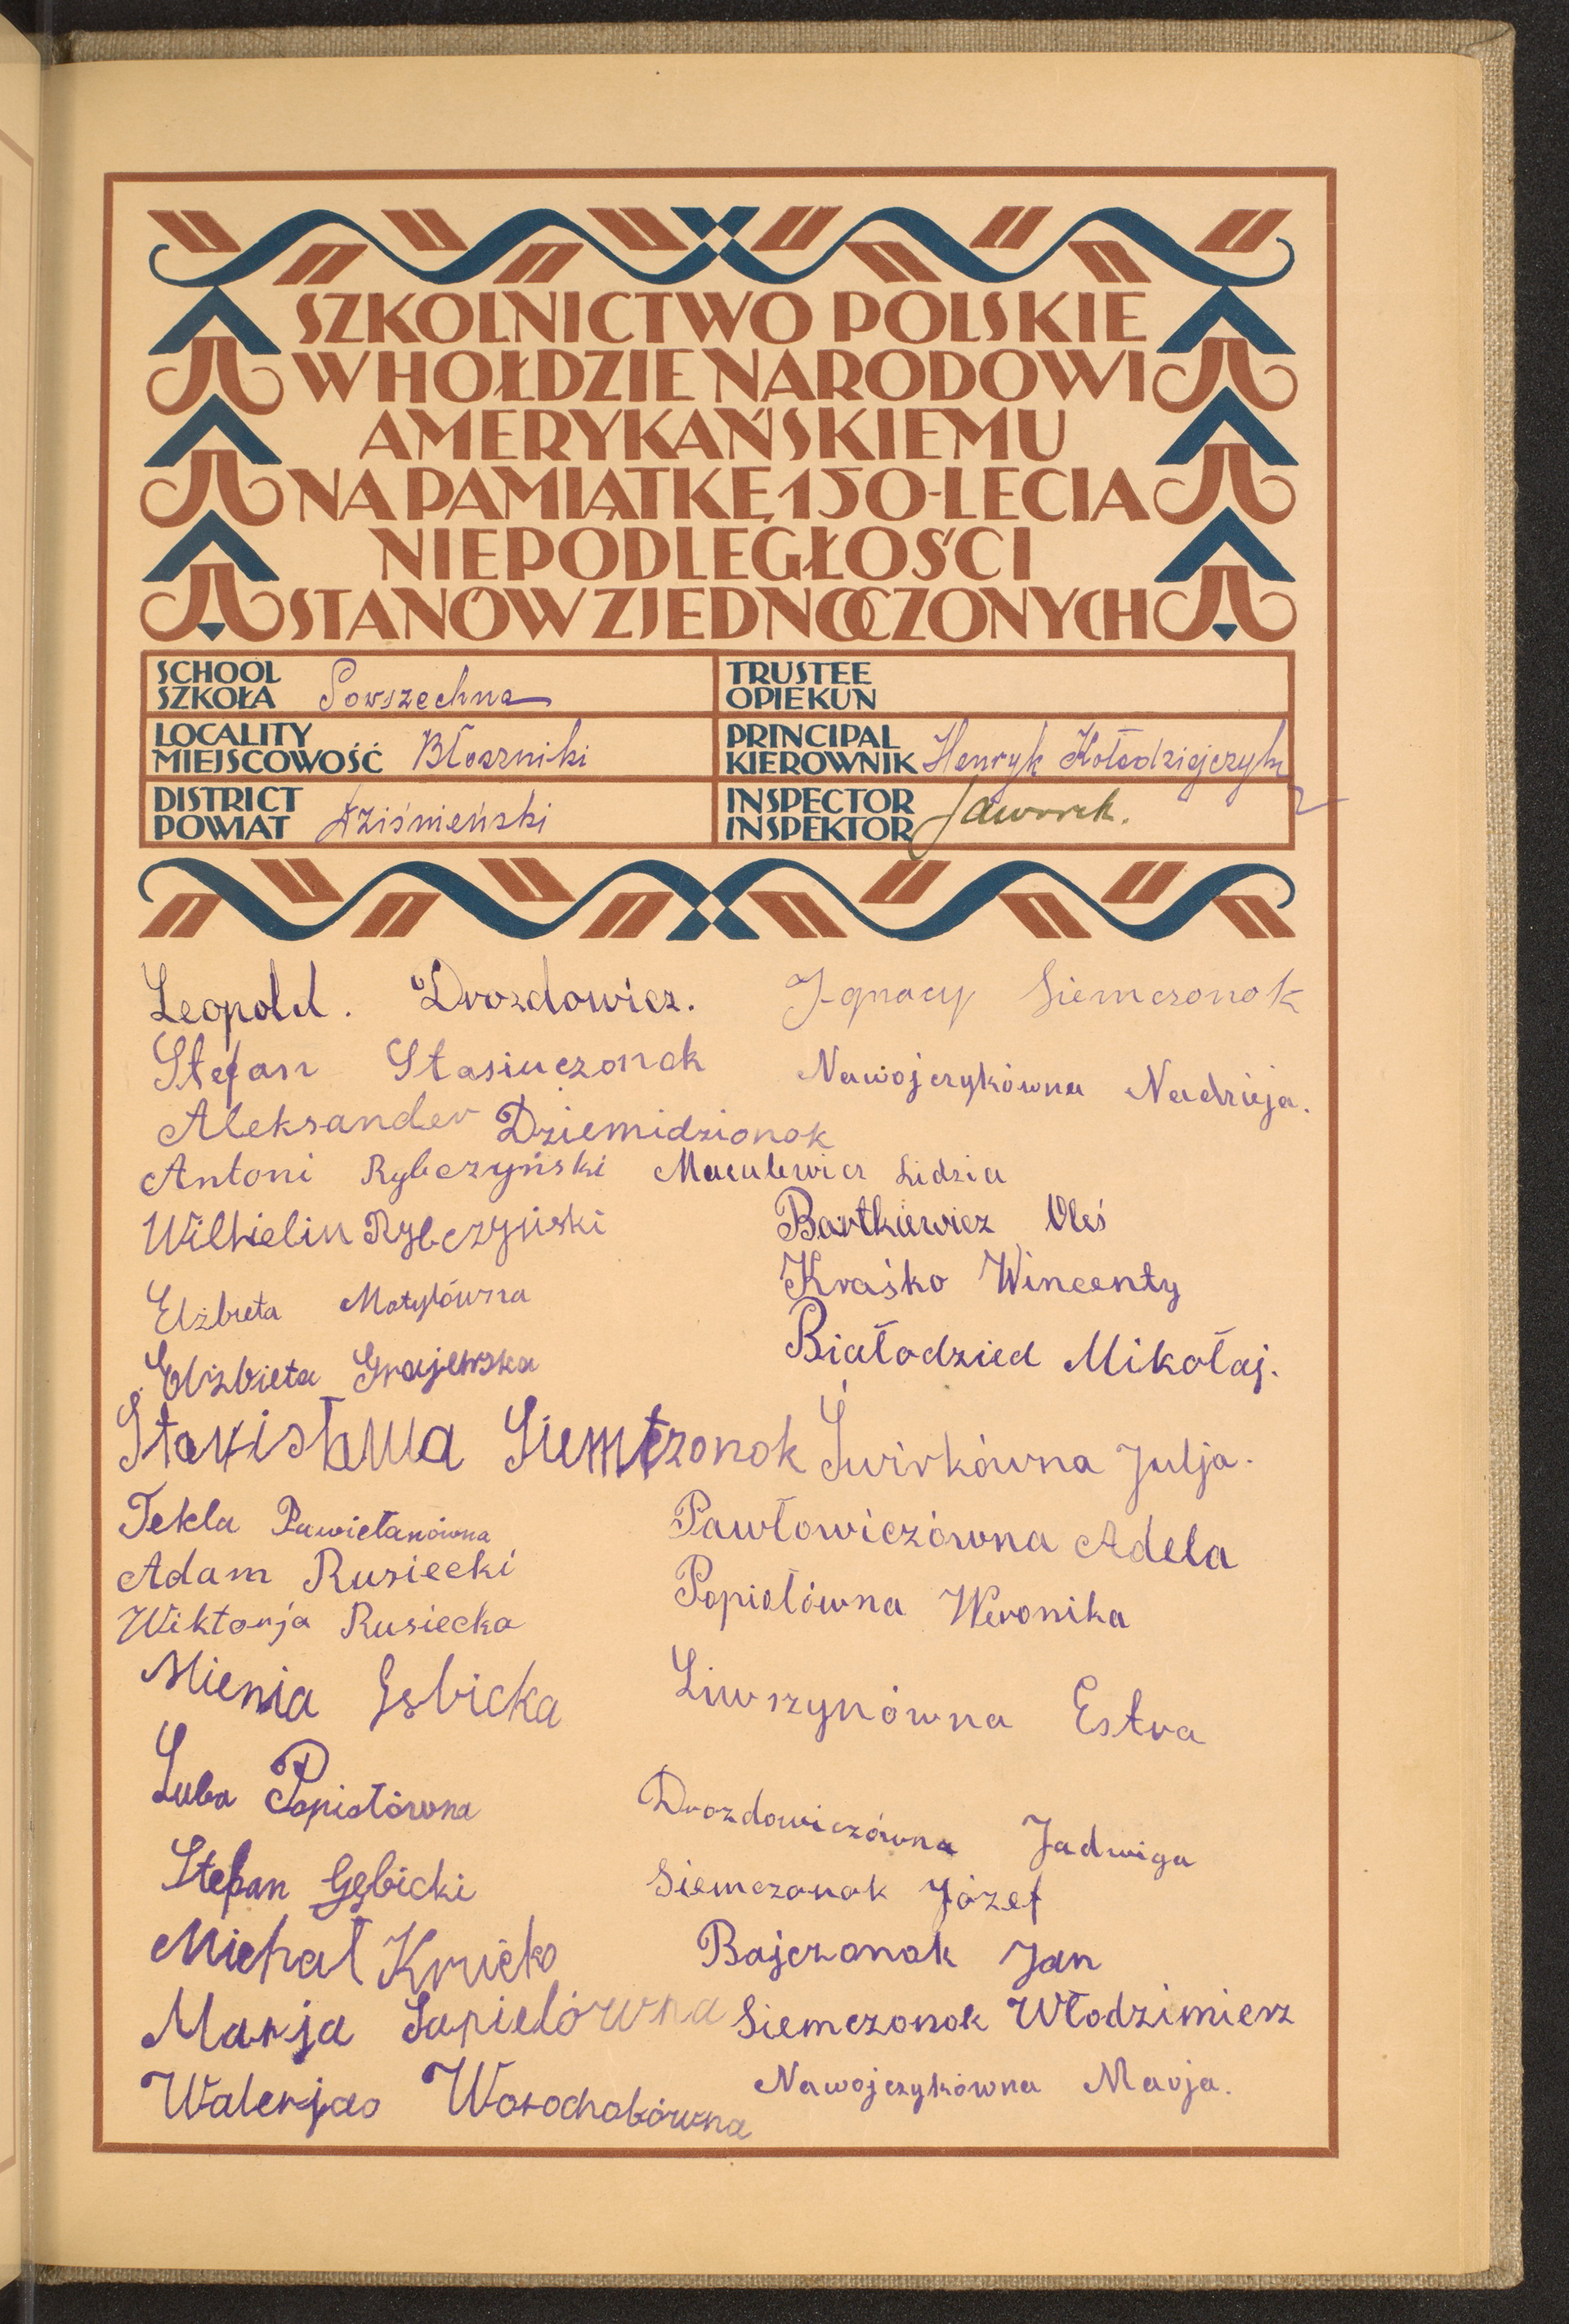 SZKOLNICTWO POLSKIE
W HOŁDZIE NARODOWI
AMERYKAŃSKIEMU
NA PAMIĄTKĘ 150-LECIA
NIEPODLEGŁOŚCI
STANÓW ZJEDNOCZONYCH
SCHOOL
SZKOŁA Powszechna
TRUSTEE
OPIEKUN
LOCALITY
MIEJSCOWOŚĆ Błoszniki
PRINCIPAL
KIEROWNIK Henryk Kołodziejczyk
DISTRICT
POWIAT dziśnieński
INSPECTOR
INSPEKTOR Jaworek.
Leopold. Drozdowicz.
Stefan Stasiuczonek
Aleksander Dziemidzionok
Antoni Rybczyński
Wilhielm Rybczyński
Elżbieta Motylówna
Elżbieta Grajewska
Stanisława Siemczonok
Tekla
Adam Rusiecki
Wiktorja Rusiecka
Mienia Gębicka
Luba Popiołówna
Stefan Gębicki
Michał
Marja Sapielówna
Walerja Worochobówna
Ignacy Siemczonok
Nawojczykówna Nadzieja.
Maculewicz Lidzia
Bartkiewicz Oleś
Kraśko Wincenty
Białodzied Mikołaj.
Świrkówna Julja.
Pawłowiczówna Adela
Popiołówna Weronika
Liwszynówna Estra
Drozdowiczówna Jadwiga
Siemczonok Józef
Bajczonok Jan
Siemczonok Włodzimierz
Nawojczykówna Marja.